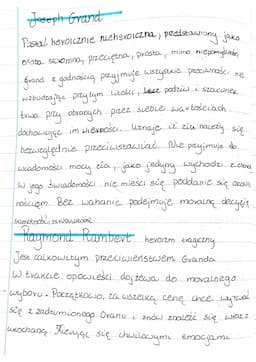 Joseph Grand
Postać heroicznie nieheroiczna, przedstawiony jako
osoba skromna, przeciętna, prosta, mimo niepomyślności
Grand z godnością przyjmuje wszystkie przeciwności nie
wzbudzając przytym litości, lecz podziw i szacunek
trwa przy obranych przez siebie wartościach
dochowując im wierności. Uznaje iż złu należy się
bezwzględnie przeciwstawiać. Nie przyjmuje do
wiadomości mocy zła, jako jedyny wychodzi z
W jego świadomości nie mieści się poddanie się
Bez wahania podejmuje moralną decyzję
Raymond Rambert heroizm tragiczny
Jest całkowitym przeciwieństwem Granda
W trakcie opowieści dojrzewa do moralnego
wyboru. Początkowo, za wszelką cenę chce wyrwać
się z zadżumionego Oranu i znów znaleźć się wraz z
ukochaną. Kierując się chwilowymi emocjami